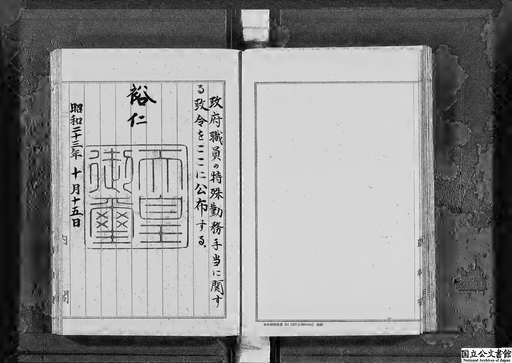 政府職員の特殊勤務手当に関す
る政令をここに公布する。
裕仁
天皇
御璽
昭和二十三年十月十五日
内閣
国立公文書館
National Archives of Japan